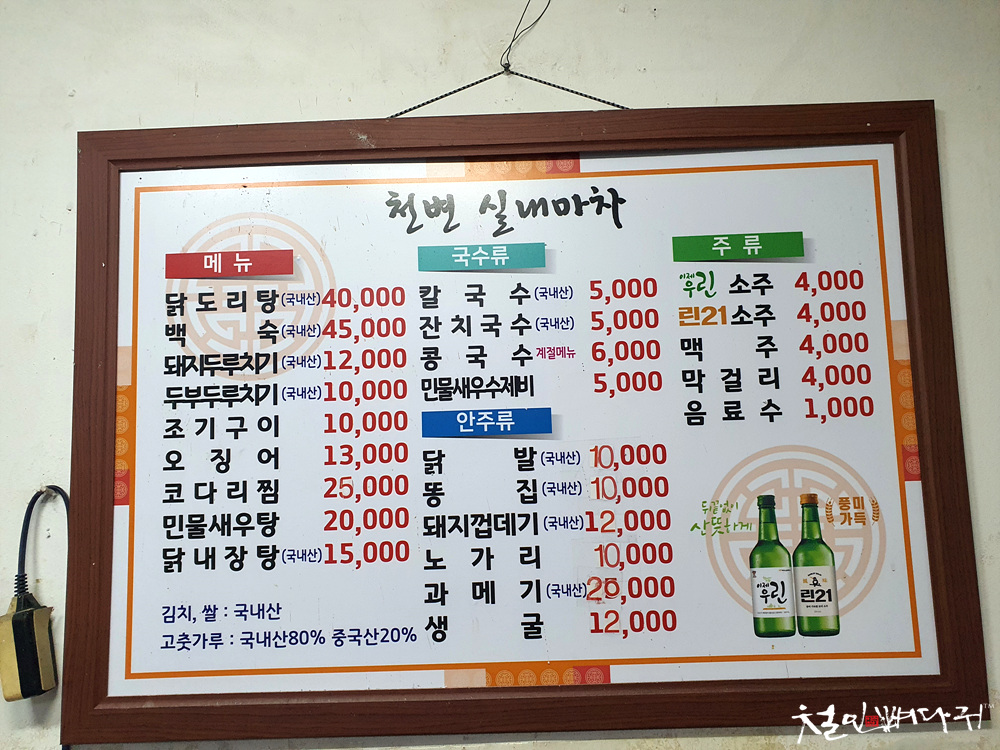 천변 실내마차
메뉴
닭도리탕(국내산) 40,000
백숙(국내산) 45,000
돼지두루치기(국내산) 12,000
두부두루치기(국내산) 10,000
조기구이 10,000
오징어 13,000
코다리찜 25,000
민물새우탕 20,000
닭내장탕(국내산) 15,000
김치, 쌀 : 국내산
고춧가루 : 국내산80% 중국산20%
국수류
칼국수(국내산) 5,000
잔치국수(국내산) 5,000
콩국수 계절메뉴 6,000
민물새우수제비 5,000
안주류
닭발(국내산) 10,000
똥집(국내산) 10,000
돼지껍데기(국내산) 12,000
노가리 10,000
과메기(국내산) 25,000
생굴 12,000
주류
이제우린 소주 4,000
린21 소주 4,000
맥주 4,000
막걸리 4,000
음료수 1,000
뒤끝없이
산뜻하게
풍미
가득
이제
우린
린21
철민빠다궈™